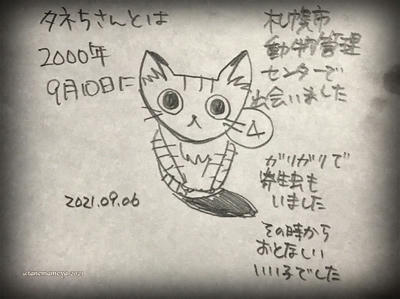 タネちさんとは
2000年
9月10日に
札幌市
動物管理
センターで
出会いました
4
ガリガリで
寄生虫も
いました
その時から
おとなしい
いい子でした
2021.09.06
@tanemameya 2021